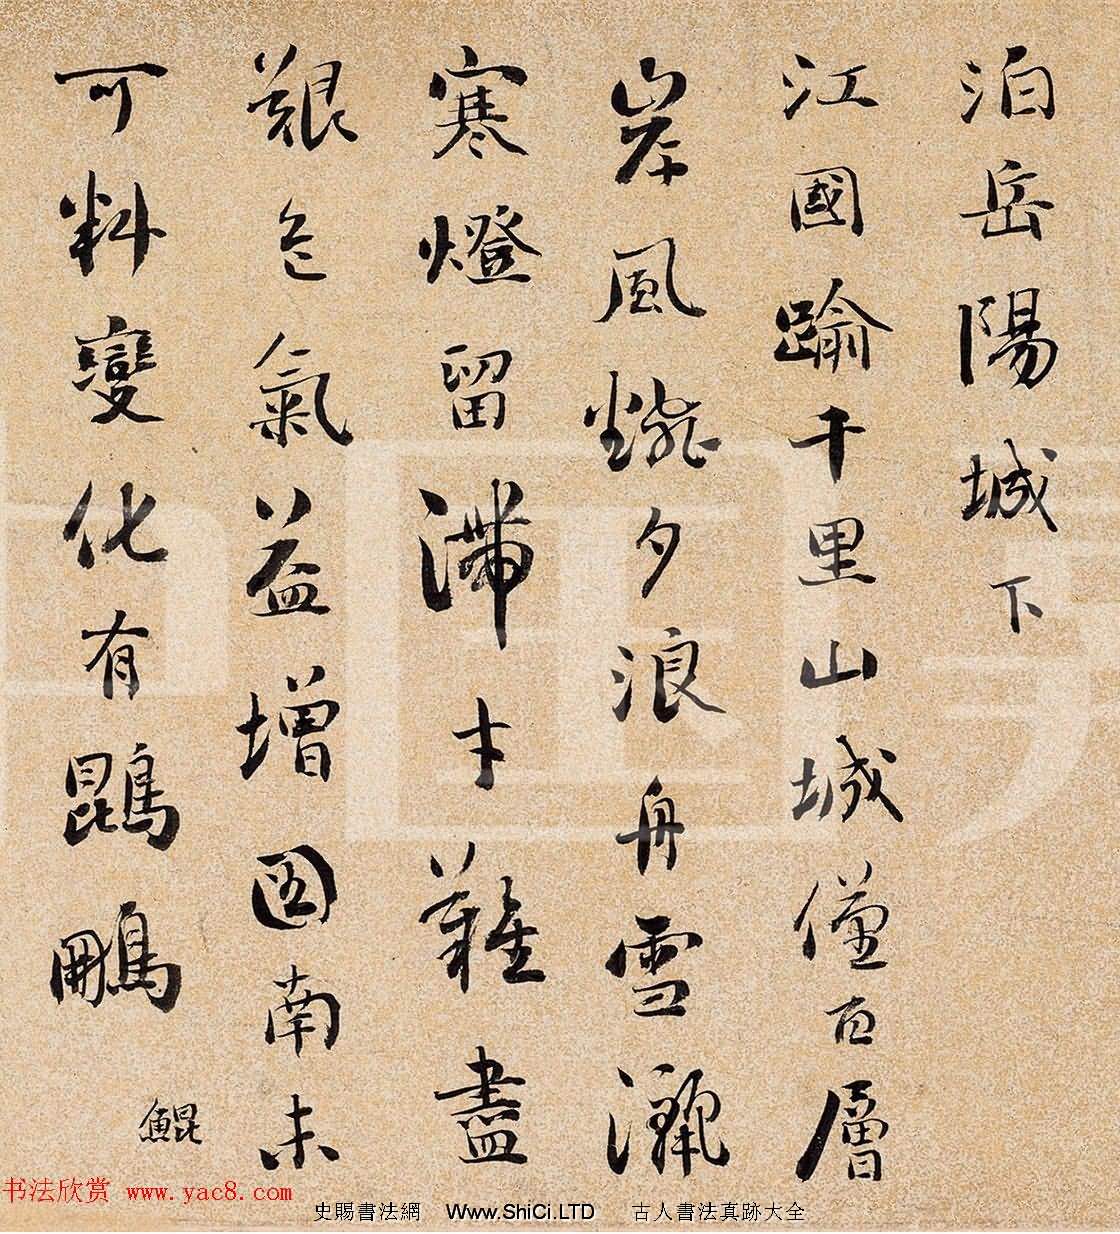 泊岳陽城下
江國踰千里山城僅百層
岸風飜夕浪舟雪灑
寒燈留滯才難盡
艱危氣益增圖南未
可料變化有鵾鵬
鯤
书法欣赏 www.yac8.com
史賜書法網 Www.ShiCi.LTD 古人書法真跡大全